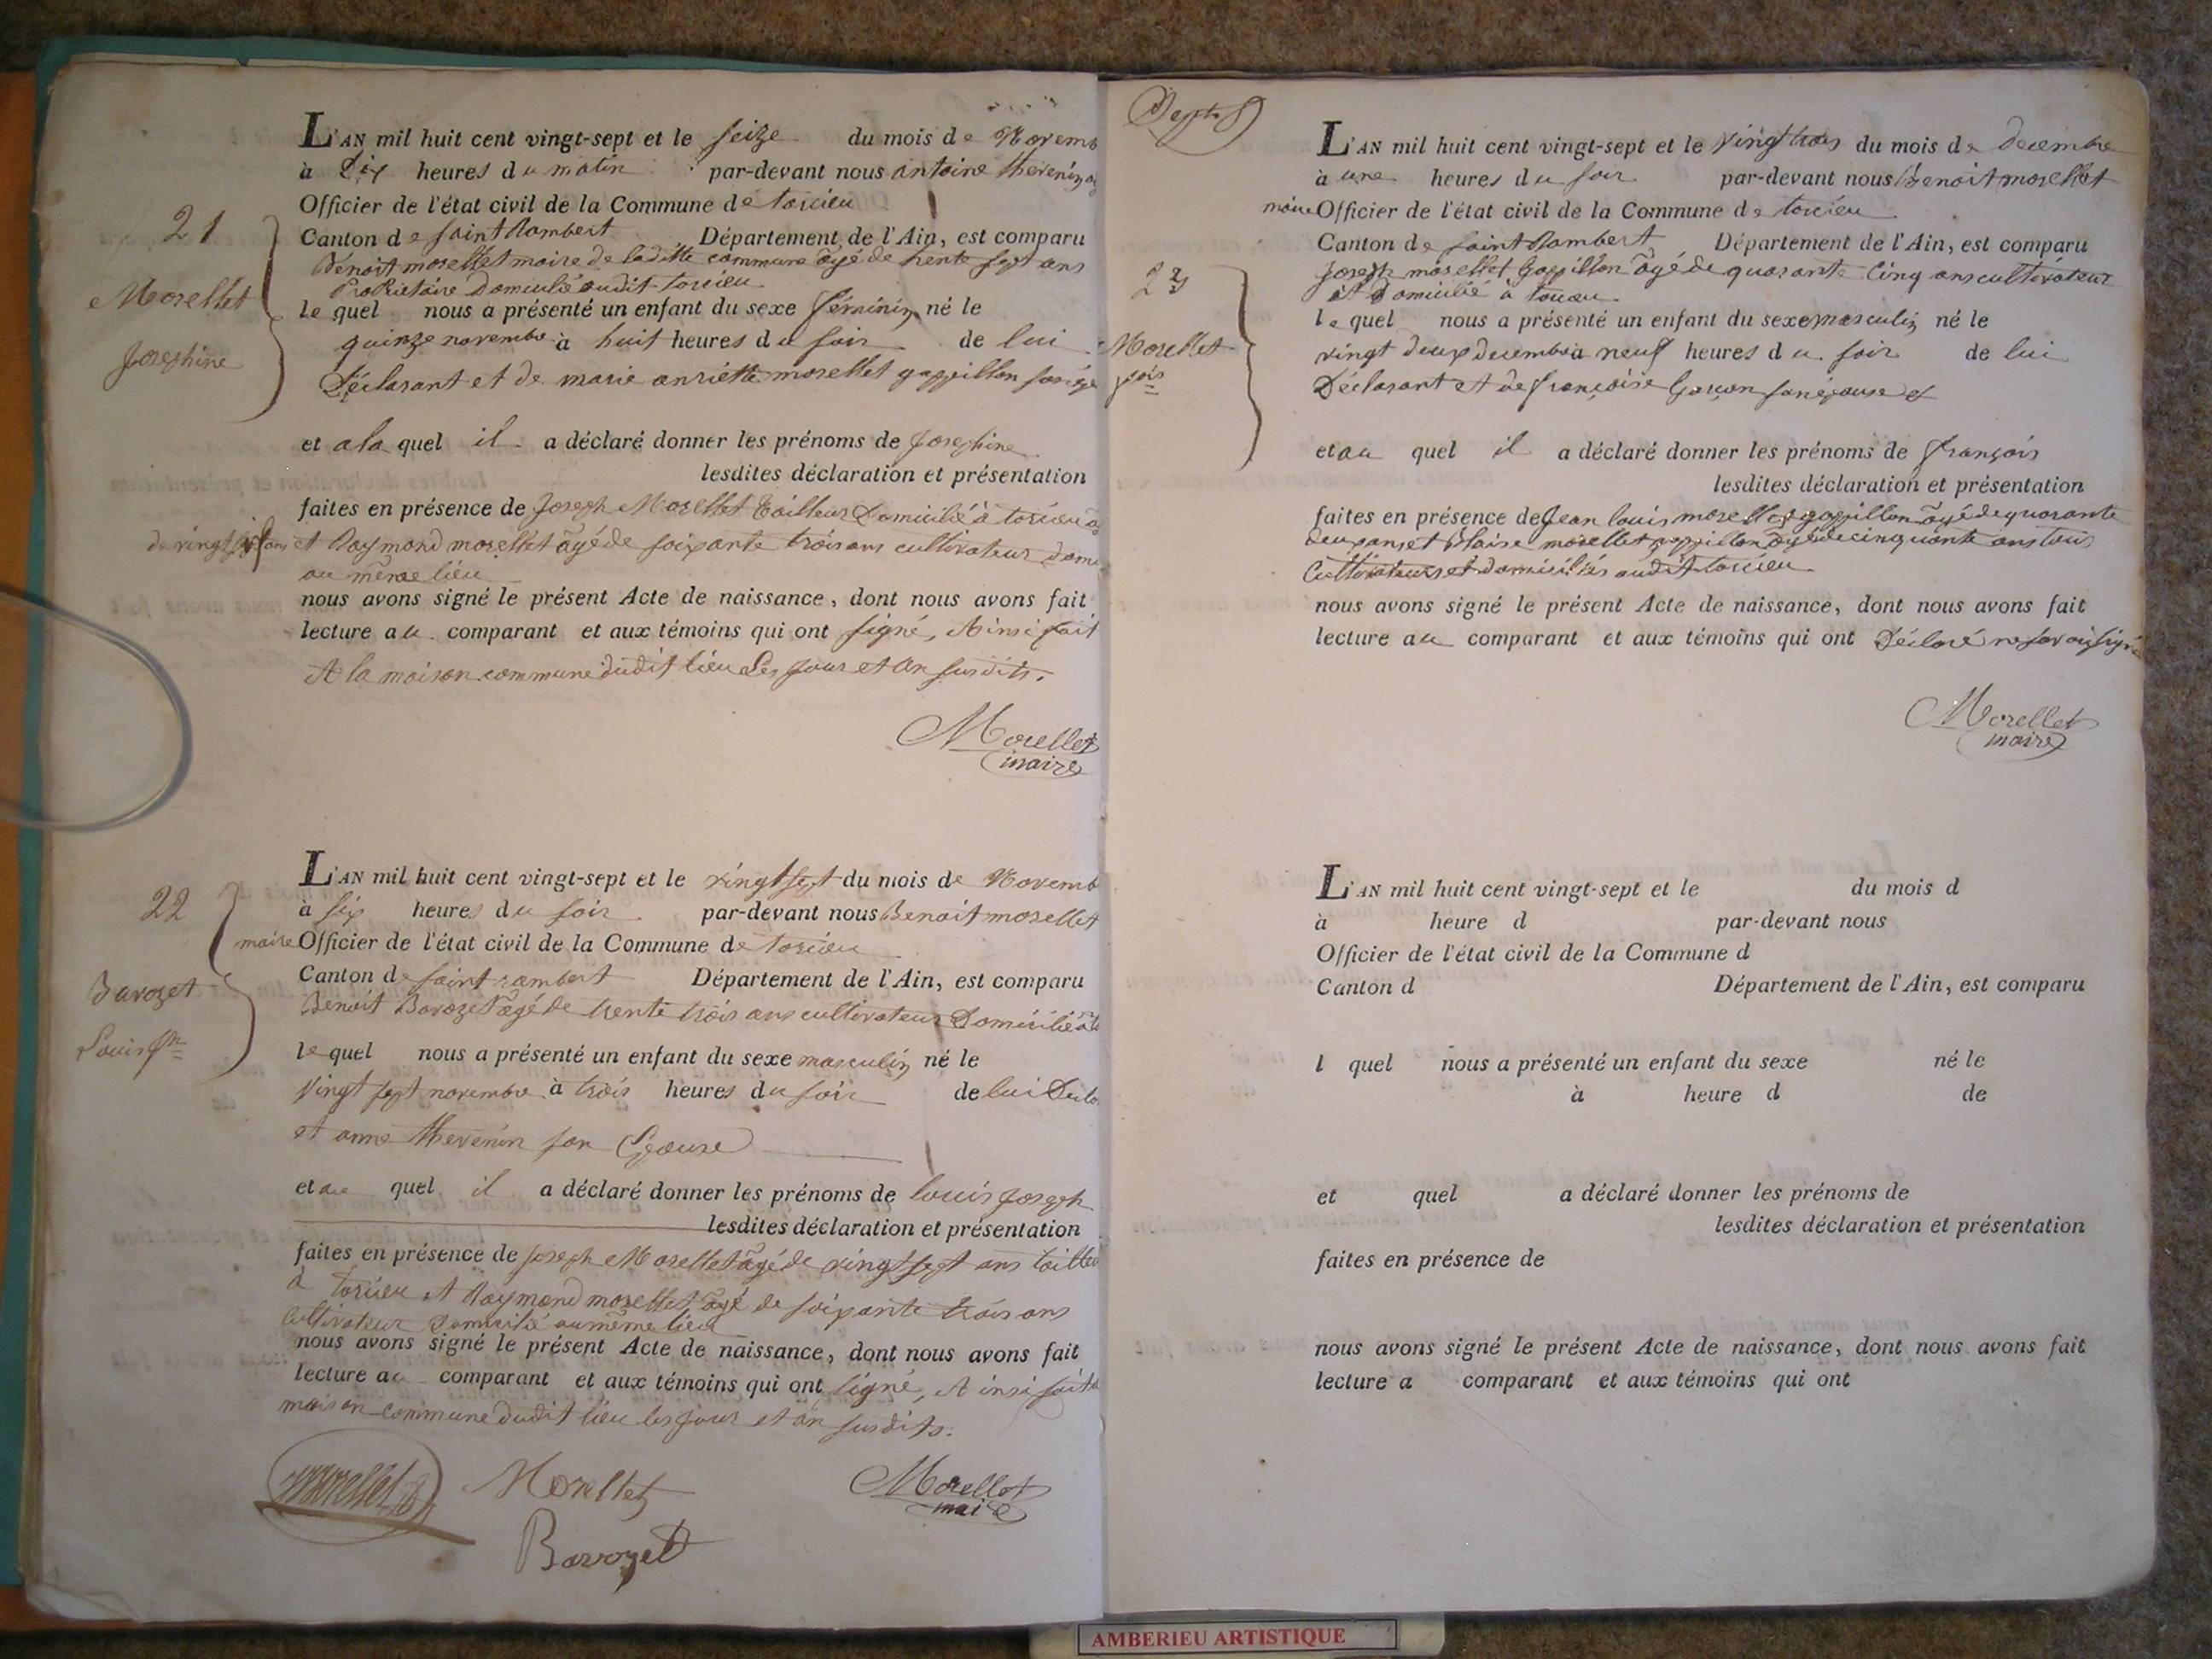 21
Morellet
Josephine
L'AN mil huit cent vingt-sept et le seize du mois de Novemb
à Dix heures du matin par-devant nous antoine thevenin
Officier de l'état civil de la Commune de torcieu
Canton de saint Rambert Département de l'Ain, est comparu
Benoit morellet maire de laditte commune âgé de trente sept ans
Proprietaire Domicilié audit torcieu
le quel nous a présenté un enfant du sexe féminin né le
quinze novembre à huit heures du soir de lui
Déclarant et de marie anriette morellet gappillon son
et ala quel il a déclaré donner les prénoms de Josephine
lesdites déclaration et présentation
faites en présence de Joseph Morellet tailleur Domicilié à torcieu
de vingt sept ans et Raymond morellet âgé de soixante trois ans cultivateur domi
au même lieu
nous avons signé le présent Acte de naissance, dont nous avons fait
lecture au comparant et aux témoins qui ont signé, Ainsi fait
A la maison commune dudit lieu Les jour et an susdits.
Morellet
maire
22
Barozet
Louis Jph
L'AN mil huit cent vingt-sept et le vingt sept du mois de Novemb
à six heures du soir par-devant nous Benoit morellet
maire Officier de l'état civil de la Commune de torcieu
Canton de saint rambert Département de l'Ain, est comparu
Benoit Barozet âgé de trente trois ans cultivateur Domicilié
le quel nous a présenté un enfant du sexe masculin né le
vingt sept novembre à trois heures du soir de lui Décla
et anne thevenin son Epouse
et au quel il a déclaré donner les prénoms de louis Joseph
lesdites déclaration et présentation
faites en présence de Joseph Morellet âgé de vingt sept ans tailleu
à torcieu et Raymond morellet âgé de soixante trois ans
cultivateur Domicilié au même lieu
nous avons signé le présent Acte de naissance, dont nous avons fait
lecture au comparant et aux témoins qui ont signé, Ainsi fait
maison commune dudit lieu les jour et an susdits.
Morellet
Morellet
Morellet
maire
Barrozet
23
Morellet
L'AN mil huit cent vingt-sept et le vingt trois du mois de decembre
à une heures du soir par-devant nous Benoit morellet
maire Officier de l'état civil de la Commune de torcieu
Canton de saint Rambert Département de l'Ain, est comparu
Joseph morellet Gappillon âgé de quarante Cinq ans cultivateur
et Domicilié à torcieu
le quel nous a présenté un enfant du sexe masculin né le
vingt deux decembre à neuf heures du soir de lui
Déclarant et de françoise Garçon son épouse
et au quel il a déclaré donner les prénoms de françois
lesdites déclaration et présentation
faites en présence de Jean louis morellet gappillon âgé de quarante
deux ans et blaise morellet gappillon âgé de cinquante ans tous
Cultivateurs et domiciliés audit torcieu
nous avons signé le présent Acte de naissance, dont nous avons fait
lecture au comparant et aux témoins qui ont Déclaré ne savoir signé
Morellet
maire
L'AN mil huit cent vingt-sept et le du mois d
à heure d par-devant nous
Officier de l'état civil de la Commune d
Canton d Département de l'Ain, est comparu
l quel nous a présenté un enfant du sexe né le
à heure d de
et quel a déclaré donner les prénoms de
lesdites déclaration et présentation
faites en présence de
nous avons signé le présent Acte de naissance, dont nous avons fait
lecture a comparant et aux témoins qui ont
AMBERIEU ARTISTIQUE